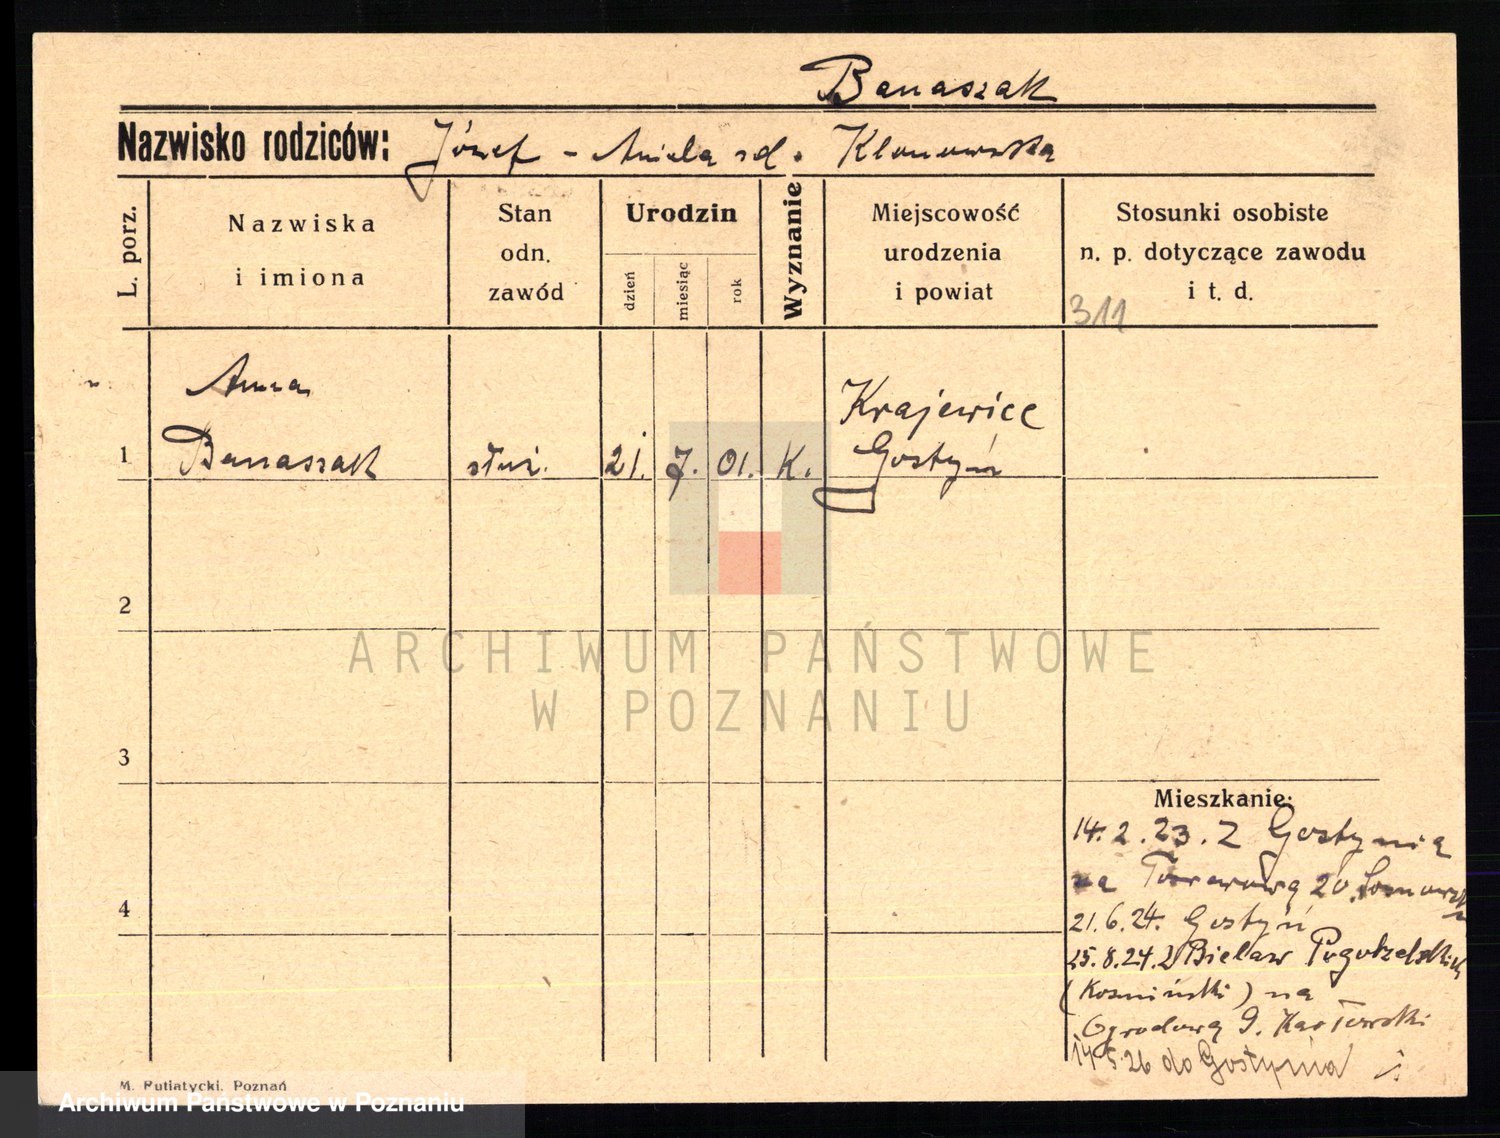 Banaszak
Nazwisko rodziców: Józef - Aniela zd. Klonowska
L. porz.
Nazwiska
i imiona
Stan
odn.
zawód
Urodzin
dzień
miesiąc
rok
Wyznanie
Miejscowość
urodzenia
i powiat
Stosunki osobiste
n. p. dotyczące zawodu
i t. d.
311
Anna
1 Banaszak służ. 21. 7. 01. K. Krajewice
Gostyń
2
ARCHIWUM PAŃSTWOWE
W POZNANIU
3
Mieszkanie:
14. 2. 23. Z Gostynia
na 20.
4
21. 6. 24. Gostyń
25. 8. 24. Z Bielaw Pogorzelskich
(Kosmiński) na
Ogrodową 9. Karłowski
14 5 26 do Gostynia
M. Putiatycki, Poznań
Archiwum Państwowe w Poznaniu